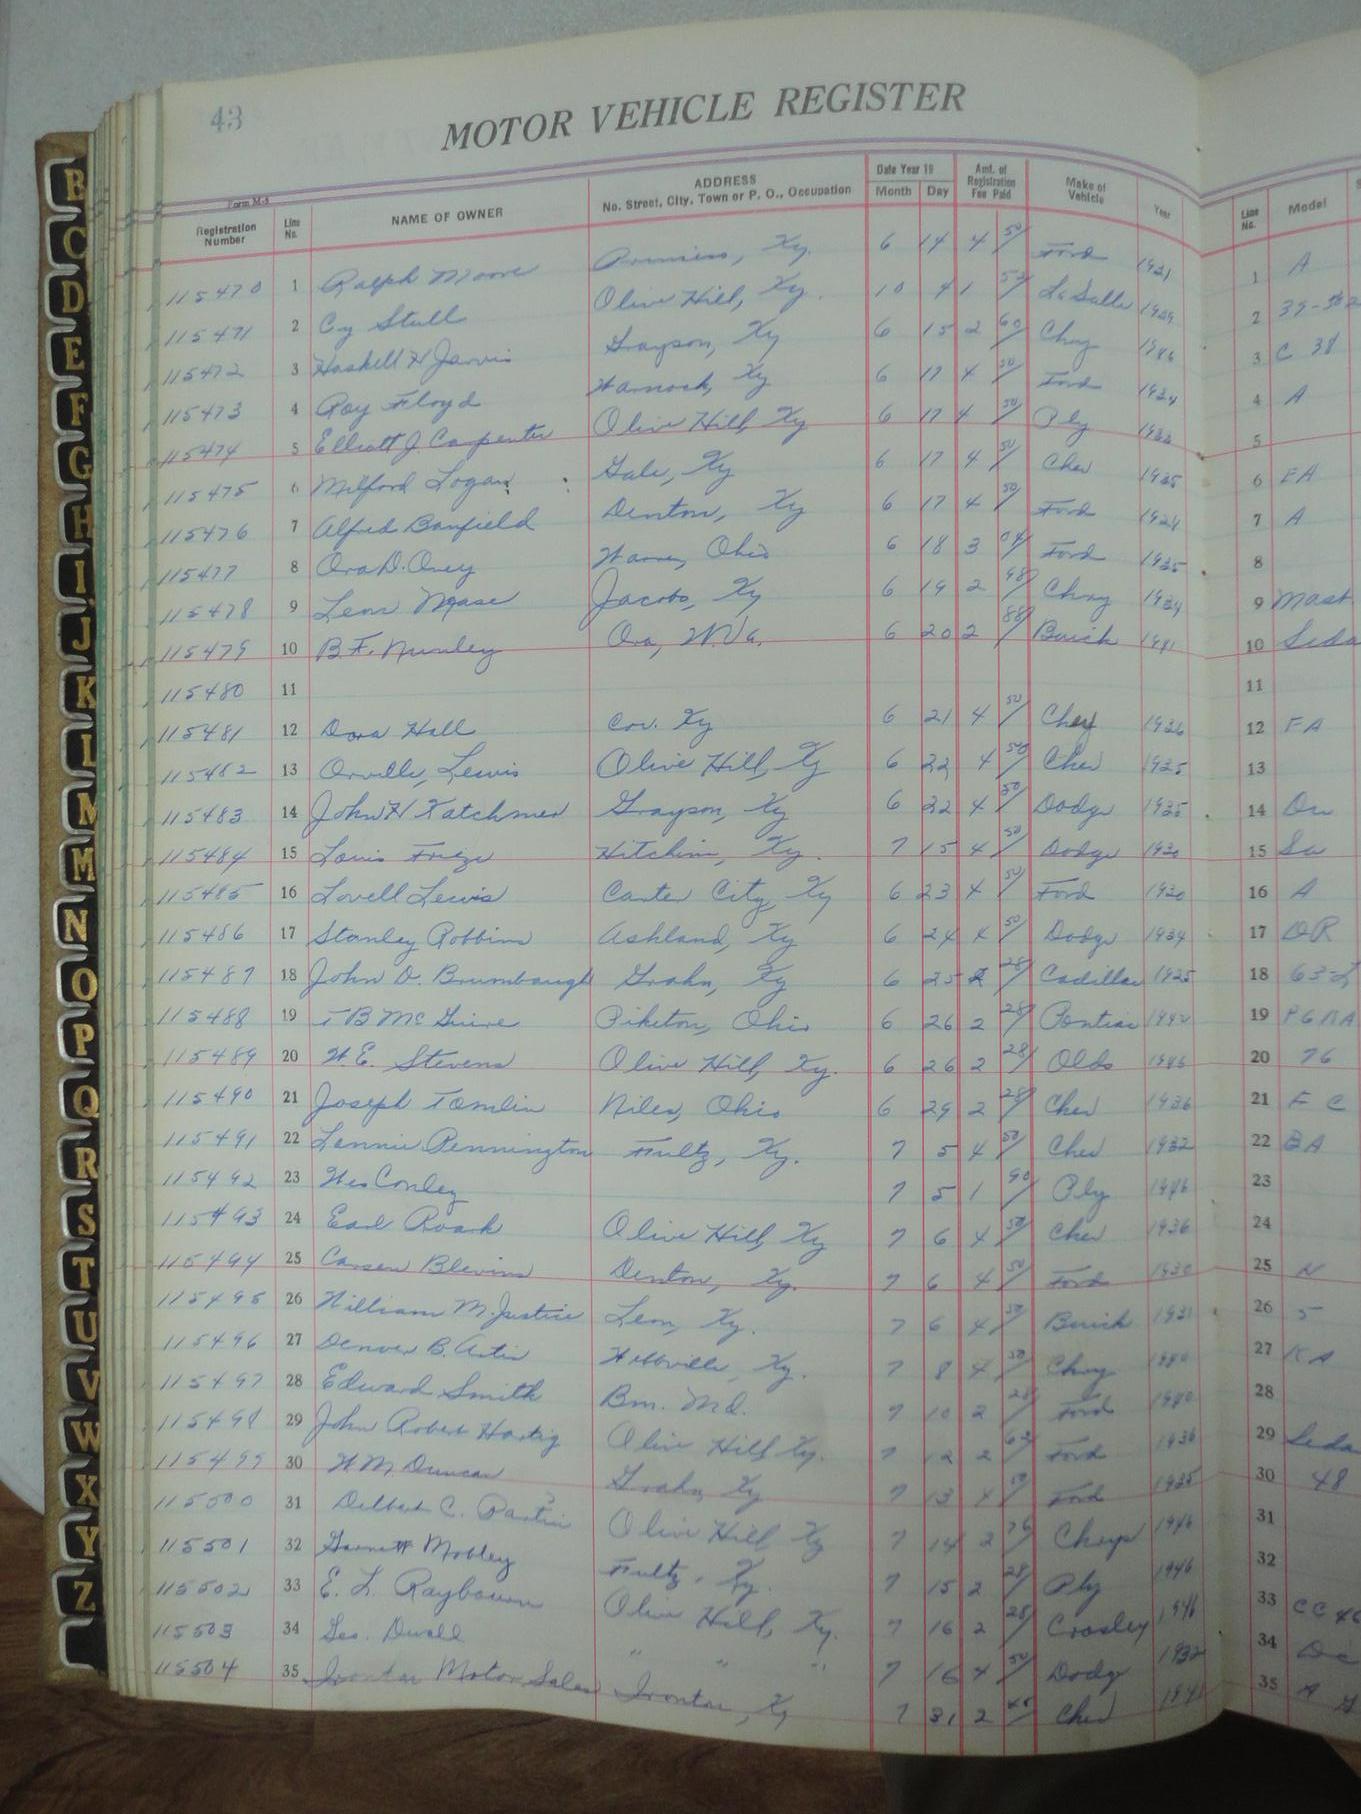 43
MOTOR VEHICLE REGISTER
Form M-8
Registration Number Line No. NAME OF OWNER ADDRESS No. Street, City, Town or P. O., Occupation Date Year 19 Month Day Amt. of Registration Fee Paid Make of Vehicle Year Line No. Model
115470 1 Ralph Moore Ky. 6 14 4 50 Ford 1931 1 A
115471 2 Cy Stull Olive Hill, Ky. 10 4 1 52 La Salle 1939 2
115472 3 Haskell H Jarvis Grayson, Ky 6 15 2 60 Chry 3 C 38
115473 4 Roy Floyd Warnock, Ky 6 17 4 50 Ford 4 A
115474 5 Elliott J. Carpenter Olive Hill, Ky 6 17 4 50 Ply 5
115475 6 Milford Logan Gale, Ky 6 17 4 50 Chev 1935 6 EA
115476 7 Alfred Banfield Denton, Ky 6 17 4 50 Ford 7 A
115477 8 Ora D. Oney Ohio 6 18 3 04 Ford 1935 8
115478 9 Leon Jacobs, Ky 6 19 2 98 Chry 1934 9 Mast
115479 10 B.F. Nunley W. Va. 6 20 2 88 Buick 1941 10 Seda
115480 11 11
115481 12 Dora Hall Cov. Ky 6 21 4 50 Chev 1936 12 FA
115482 13 Orville, Lewis Olive Hill, Ky 6 22 4 50 Chev 1935 13
115483 14 John H Katchmer Grayson, Ky 6 22 4 50 Dodge 1935 14 Du
115484 15 Louis Hitchins, Ky. 7 15 4 50 Dodge 1930 15
115485 16 Lovell Lewis Carter City, Ky 6 23 4 50 Ford 1930 16 A
115486 17 Stanley Robbins Ashland, Ky 6 24 4 50 Dodge 1934 17 DR
115487 18 John D. Brumbaugh Grahn, Ky 6 25 2 28 Cadillac 1925 18
115488 19 T B McGuire Piketon, Ohio 6 26 2 28 Pontiac 19
115489 20 W.E. Stevens Olive Hill, Ky. 6 26 2 28 Olds 1946 20 76
115490 21 Joseph Tomlin Niles, Ohio 6 29 2 28 Chev 1936 21 F C
115491 22 Lonnie Pennington Fultz, Ky. 7 5 4 50 Chev 1932 22 BA
115492 23 Wes Conley 7 5 1 90 Ply 1946 23
115493 24 Earl Roark Olive Hill, Ky 7 6 4 50 Chev 1936 24
115494 25 Carsen Blevins Denton, Ky. 7 6 4 50 Ford 1930 25 N
115495 26 William M. Justice Leon, Ky. 7 6 4 50 Buick 1931 26 5
115496 27 Denver B. Artis Webbville, Ky. 7 8 4 50 Chry 27 KA
115497 28 Edward Smith Bm. Md. 7 10 2 28 Ford 1940 28
115498 29 John Robert Hartig Olive Hill, Ky. 7 12 2 62 Ford 1936 29 Seda
115499 30 W M Duncan Grahn, Ky 7 13 4 50 Ford 1935 30 48
115500 31 Delbert C. Partin Olive Hill Ky 7 14 2 76 1946 31
115501 32 Garnett Mobley Fultz, Ky. 7 15 2 28 Ply 1946 32
115502 33 E. L. Raybourn Olive Hill, Ky. 7 16 2 28 Crosley 1946 33 CC 46
115503 34 Geo. Duvall " " " 7 16 4 50 Dodge 1932 34
115504 35 Ironton Motor Sales Ironton, Ky 7 31 2 Chev 35
B
C
D
E
F
G
H
I
J
K
L
M
M
N
O
P
Q
R
S
T
U
V
W
X
Y
Z